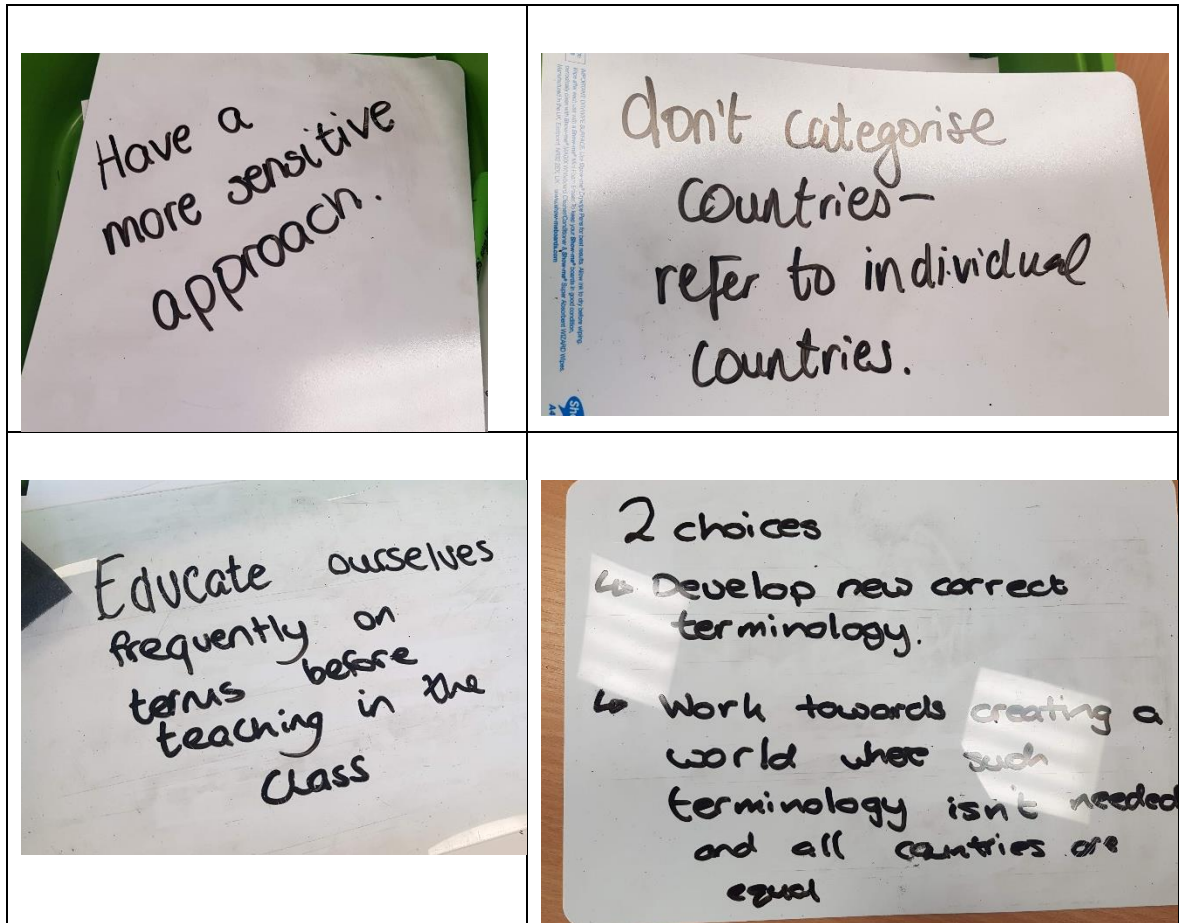 Have a
more sensitive
approach.
don't categorise
countries-
refer to individual
countries.
Educate ourselves
frequently on
terms before
teaching in the
class
2 choices
↳ Develop new correct
terminology.
↳ Work towards creating a
world where such
terminology isn't needed
and all countries are
equal